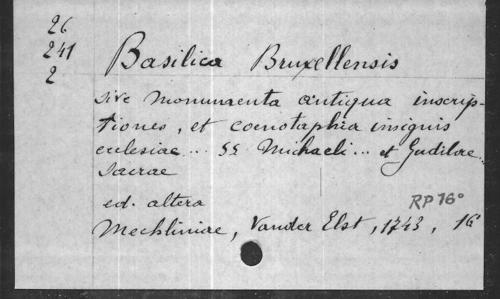 26
241
2
Basilica Bruxellensis
sive monumenta antiqua inscrip-
tiones, et coenotaphia insignis
eclesiae... SS Michaeli... et Gudilae...
Sacrae
ed. altera
RP 16°
Mechliniae, Vander Elst, 1743, 16